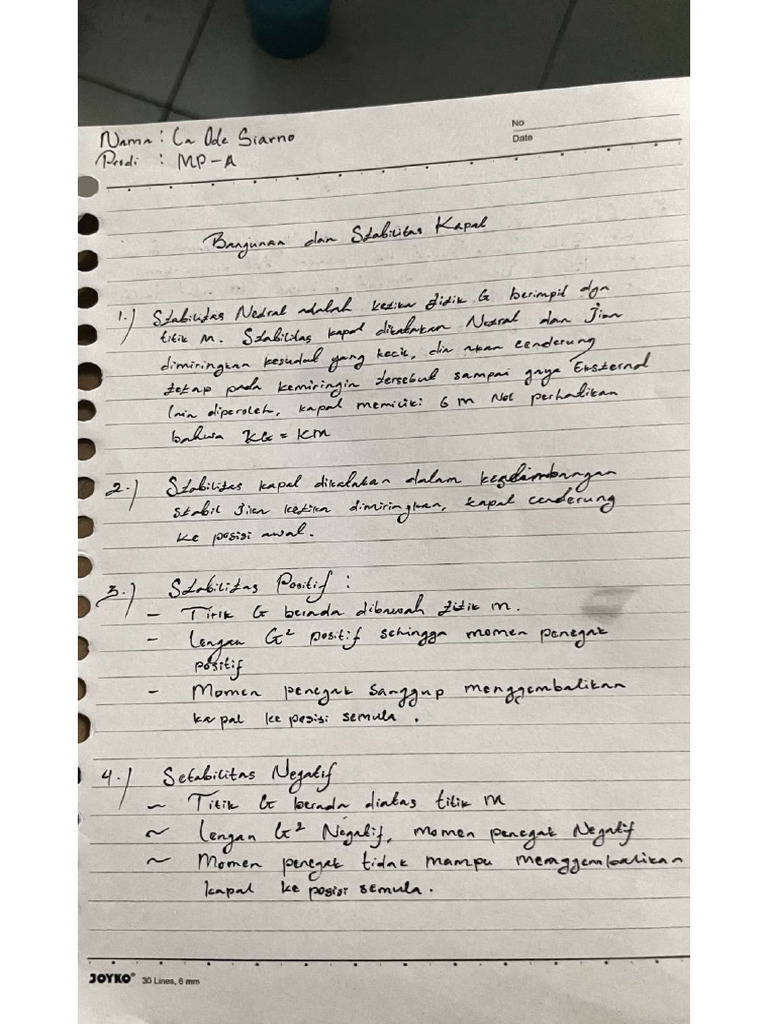 No
Date
Nama : La Ode Siarno
Prodi : MP-A
Bangunan dan Stabilitas Kapal
1.) Stabilitas Netral adalah ketika titik G berimpit dgn
titik M. Stabilitas kapal dikatakan Netral dan Jika
dimiringkan kesudut yang kecil, dia akan cenderung
tetap pada kemiringin tersebut sampai gaya Eksternal
lain diperoleh, kapal memiliki G M Nol perhatikan
bahwa KG = KM
2.) Stabilitas kapal dikatakan dalam keseimbangan
stabil Jika ketika dimiringkan, kapal cenderung
ke posisi awal.
3.) Stabilitas Positif :
- Titik G berada dibawah titik M.
- Lengan G² positif sehingga momen penegak
positif
- Momen penegak sanggup menggembalikan
kapal ke posisi semula.
4.) Setabilitas Negatif
~ Titik G berada diatas titik M
~ Lengan G² Negatif, momen penegak Negatif
~ Momen penegak tidak mampu menggembalikan
kapal ke posisi semula.
JOYKO® 30 Lines, 6 mm